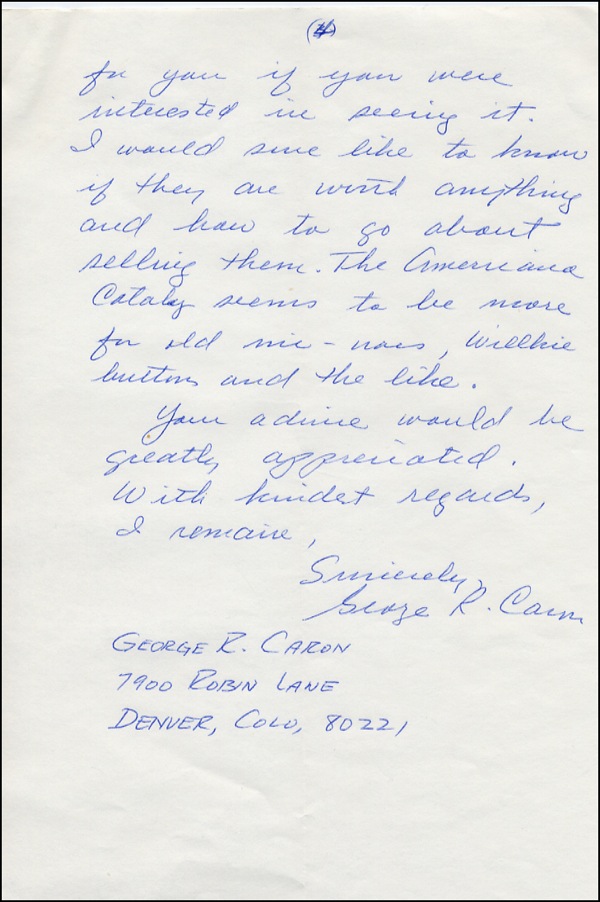 (4)
for you if you were
interested in seeing it.
I would sure like to know
if they are worth anything
and how to go about
selling them. The Americana
Catalog seems to be more
for old nic-nacs, Willkie
buttons and the like.
Your advice would be
greatly appreciated.
With kindest regards,
I remain,
Sincerely,
George R. Caron
GEORGE R. CARON
7900 ROBIN LANE
DENVER, COLO, 80221